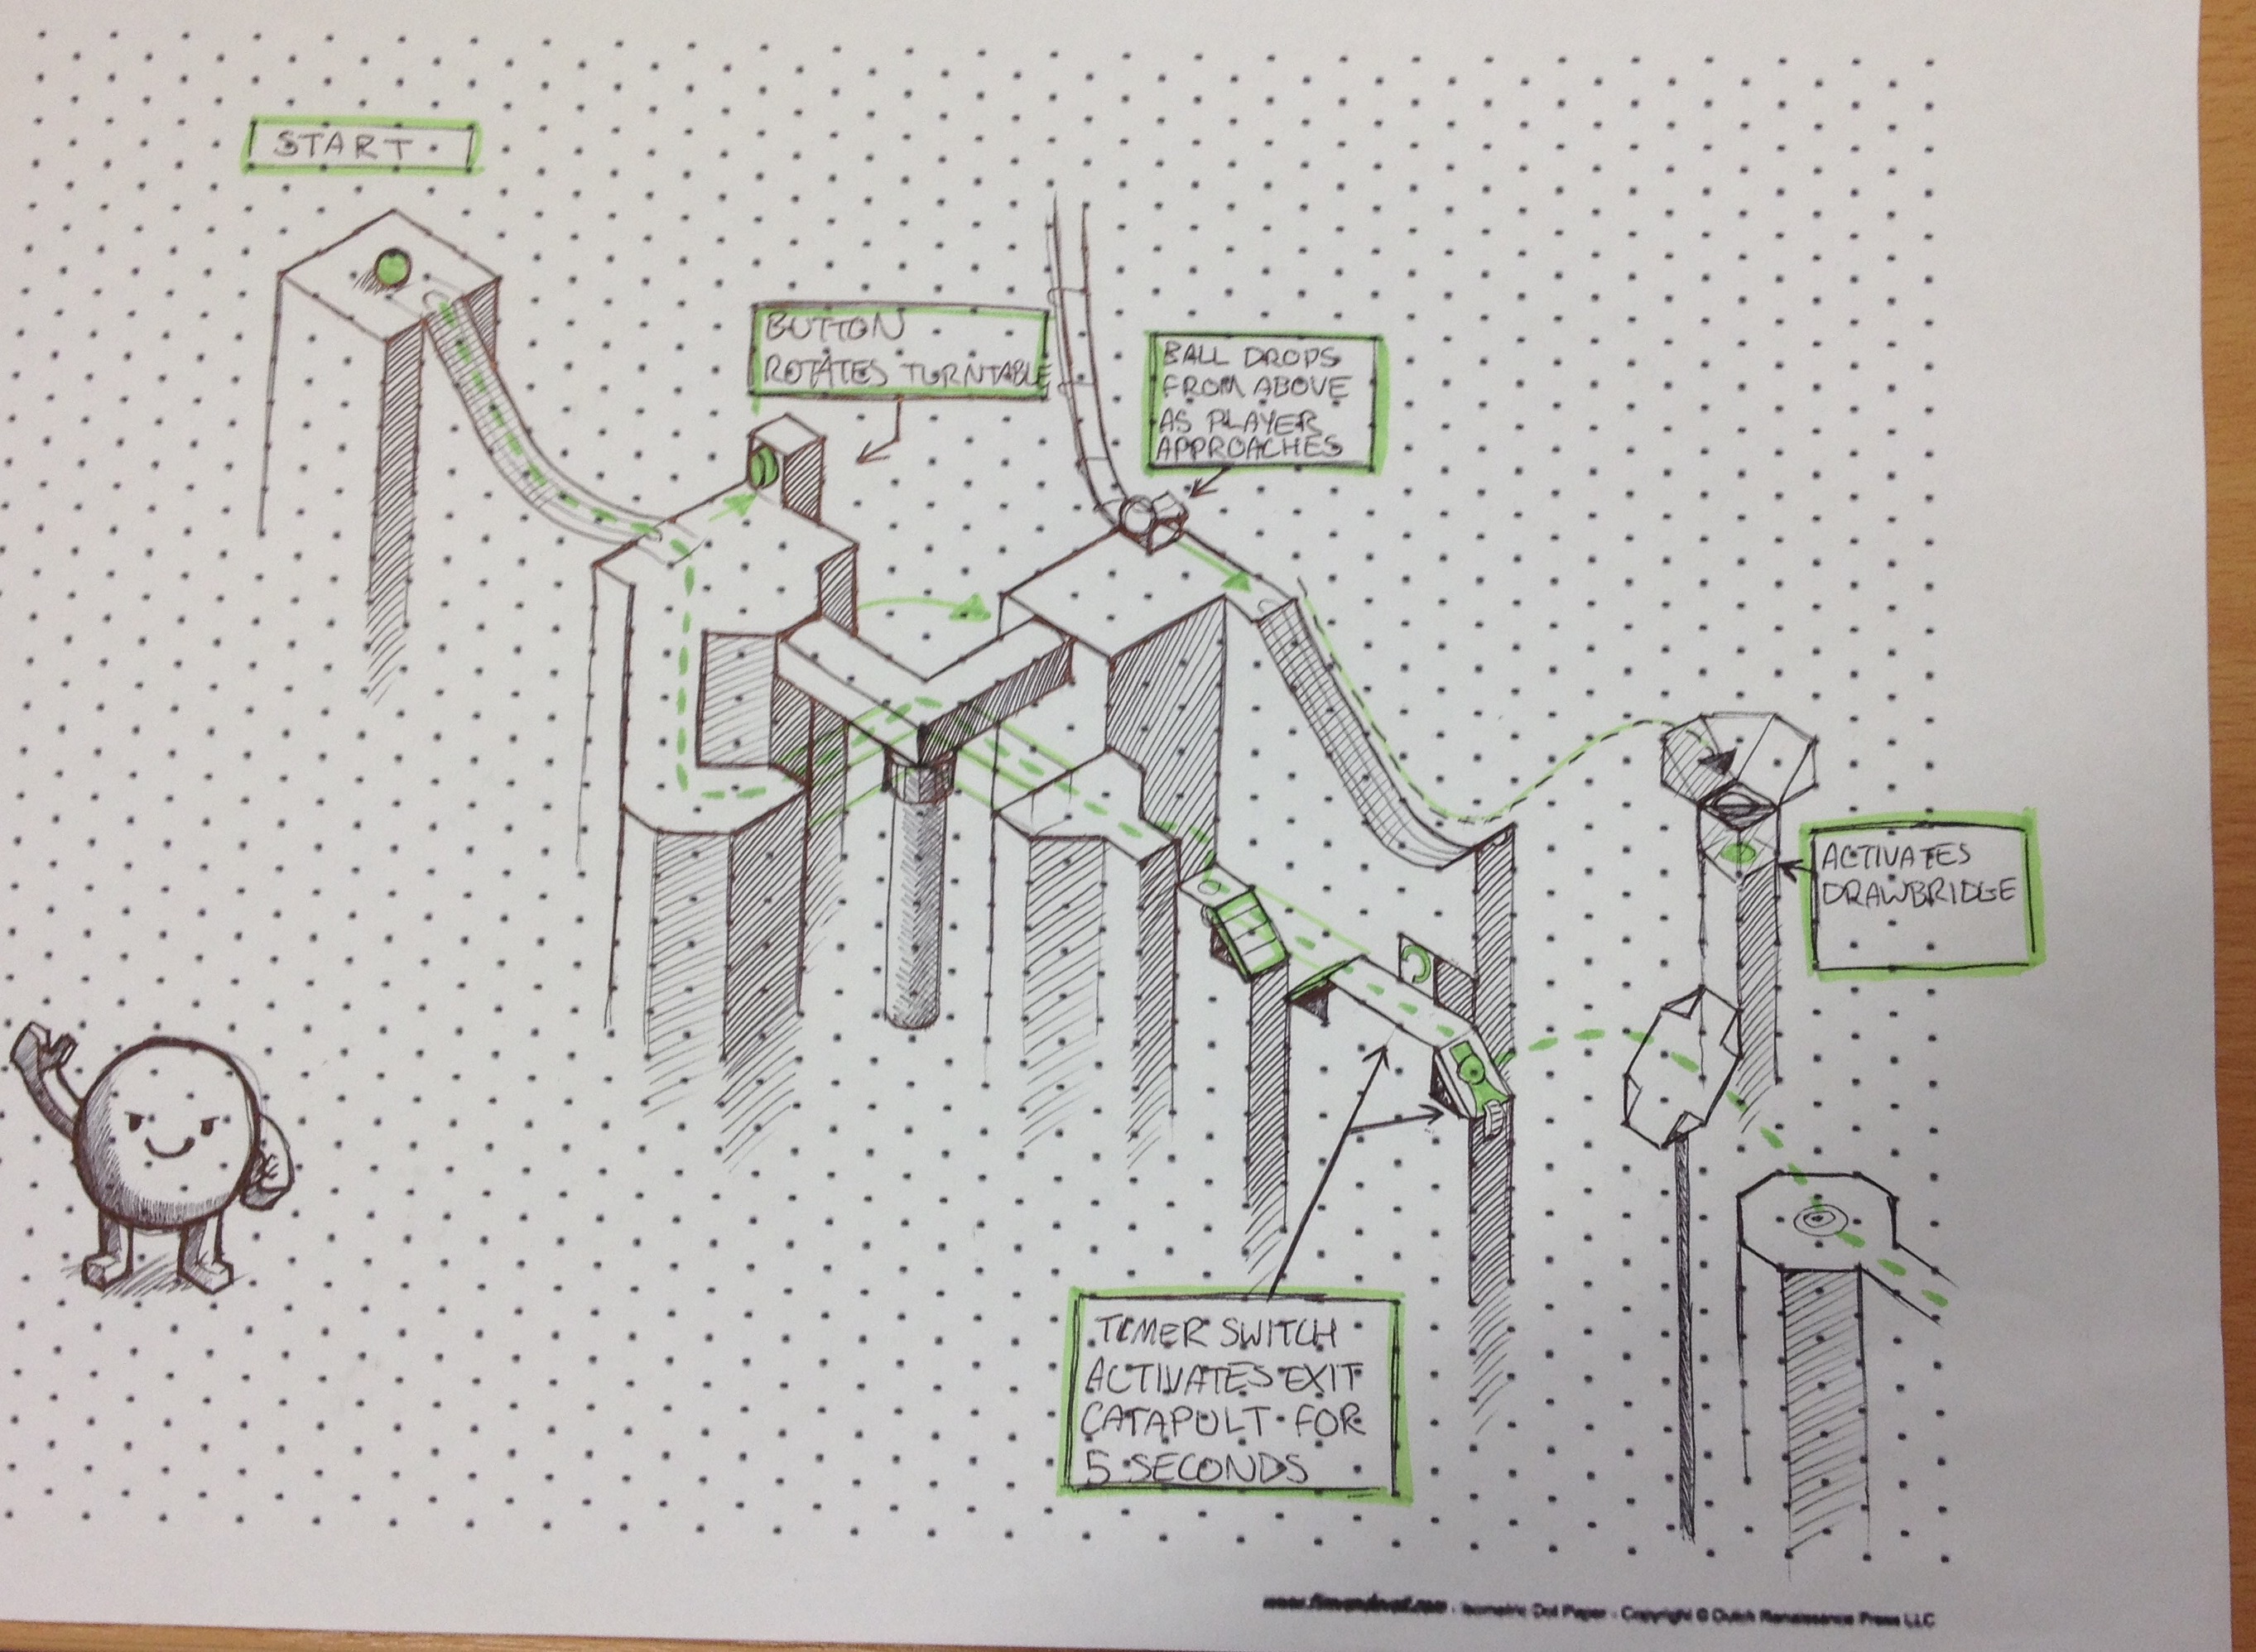 START
BUTTON
ROTATES TURNTABLE
BALL DROPS
FROM ABOVE
AS PLAYER
APPROACHES
ACTIVATES
DRAWBRIDGE
TIMER SWITCH
ACTIVATES EXIT
CATAPULT FOR
5 SECONDS
- Isometric Dot Paper - Copyright © Dutch Renaissance Press LLC